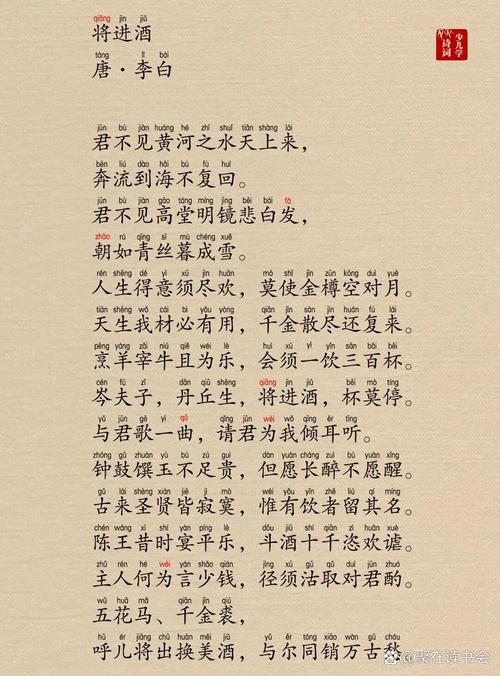 qiāng jìn jiǔ
将进酒
少儿学
诗词
táng lǐ bái
唐·李白
jūn bù jiàn huáng hé zhī shuǐ tiān shàng lái
君不见黄河之水天上来，
bēn liú dào hǎi bù fù huí
奔流到海不复回。
jūn bù jiàn gāo táng míng jìng bēi bái fà
君不见高堂明镜悲白发，
zhāo rú qīng sī mù chéng xuě
朝如青丝暮成雪。
rén shēng dé yì xū jìn huān mò shǐ jīn zūn kōng duì yuè
人生得意须尽欢，莫使金樽空对月。
tiān shēng wǒ cái bì yǒu yòng qiān jīn sàn jìn huán fù lái
天生我材必有用，千金散尽还复来。
pēng yáng zǎi niú qiě wéi lè huì xū yì yǐn sān bǎi bēi
烹羊宰牛且为乐，会须一饮三百杯。
cén fū zǐ dān qiū shēng qiāng jìn jiǔ bēi mò tíng
岑夫子，丹丘生，将进酒，杯莫停。
yǔ jūn gē yì qǔ qǐng jūn wèi wǒ qīng ěr tīng
与君歌一曲，请君为我倾耳听。
zhōng gǔ zhuàn yù bù zú guì dàn yuàn cháng zuì bú yuàn xǐng
钟鼓馔玉不足贵，但愿长醉不愿醒。
gǔ lái shèng xián jiē jì mò wéi yǒu yǐn zhě liú qí míng
古来圣贤皆寂寞，惟有饮者留其名。
chén wáng xī shí yàn píng lè dǒu jiǔ shí qiān zì huān xuè
陈王昔时宴平乐，斗酒十千恣欢谑。
zhǔ rén hé wèi yán shǎo qián jìng xū gū qǔ duì jūn zhuó
主人何为言少钱，径须沽取对君酌。
wǔ huā mǎ qiān jīn qiú
五花马、千金裘，
hū ér jiāng chū huàn měi jiǔ yǔ ěr tóng xiāo wàn gǔ chóu
呼儿将出换美酒，与尔同销万古愁
@聚在读书会